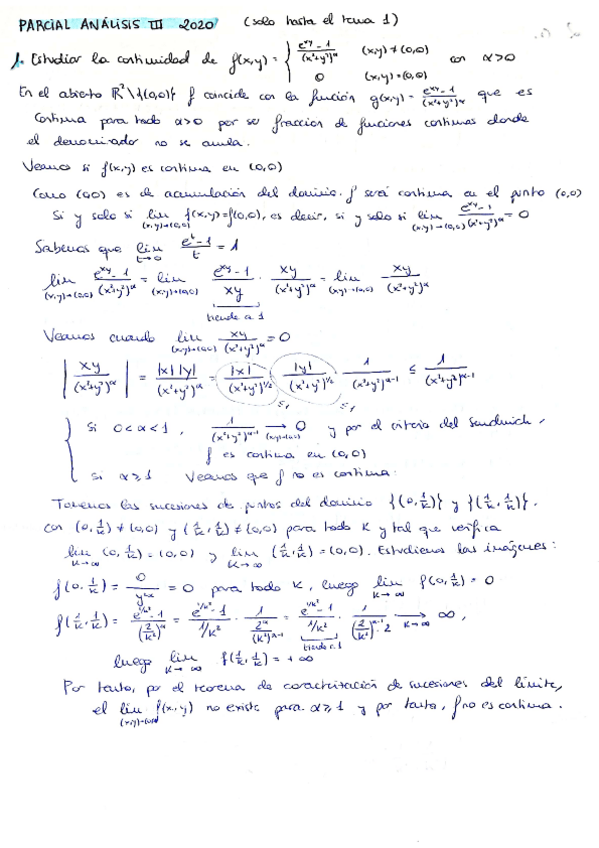 PARCIAL ANÁLISIS III 2020 (solo hasta el tema 1)
1. Estudiar la continuidad de f(x,y) = { (e^{xy} - 1)/(x²+y²)^α (x,y) ≠ (0,0)
0 (x,y) = (0,0) con α > 0
En el abierto ℝ² \ {(0,0)} f coincide con la función g(x,y) = (e^{xy} - 1)/(x²+y²)^α que es
continua para todo α>0 por ser fracción de funciones continuas donde
el denominador no se anula.
Veamos si f(x,y) es continua en (0,0)
Como (0,0) es de acumulación del dominio. f será continua en el punto (0,0)
Si y solo si lim_{(x,y)→(0,0)} f(x,y) = f(0,0), es decir, si y solo si lim_{(x,y)→(0,0)} (e^{xy} - 1)/(x²+y²)^α = 0
Sabemos que lim_{t→0} (e^t - 1)/t = 1
lim_{(x,y)→(0,0)} (e^{xy} - 1)/(x²+y²)^α = lim_{(x,y)→(0,0)} (e^{xy} - 1)/xy · xy/(x²+y²)^α = lim_{(x,y)→(0,0)} xy/(x²+y²)^α
tiende a 1
Veamos cuando lim_{(x,y)→(0,0)} xy/(x²+y²)^α = 0
|xy/(x²+y²)^α| = |x||y|/(x²+y²)^α = |x|/(x²+y²)^{1/2} · |y|/(x²+y²)^{1/2} · 1/(x²+y²)^{α-1} ≤ 1/(x²+y²)^{α-1}
≤1 ≤1
Si 0<α<1, 1/(x²+y²)^{α-1} →_{(x,y)→(0,0)} 0 y por el criterio del sandwich,
f es continua en (0,0)
si α≥1 Veamos que f no es continua:
Tomemos las sucesiones de puntos del dominio {(0,1/k)} y {(1/k,1/k)}.
con (0,1/k) ≠ (0,0) y (1/k,1/k) ≠ (0,0) para todo k y tal que verifica
lim_{k→∞} (0,1/k) = (0,0) y lim_{k→∞} (1/k,1/k) = (0,0). Estudiemos las imágenes:
f(0,1/k) = 0 = 0 para todo k, luego lim_{k→∞} f(0,1/k) = 0
f(1/k,1/k) = (e^{1/k²} - 1)/(2/k²)^α = (e^{1/k²} - 1)/(1/k²) · 1 = (e^{1/k²} - 1)/(1/k²) · 1/((2/k²)^{α-1} · 2) →_{k→∞} ∞,
tiende a 1
luego lim_{k→∞} f(1/k,1/k) = +∞
Por tanto, por el teorema de caracterización de sucesiones del límite,
el lim_{(x,y)→(0,0)} f(x,y) no existe para α≥1 y por tanto, f no es continua.